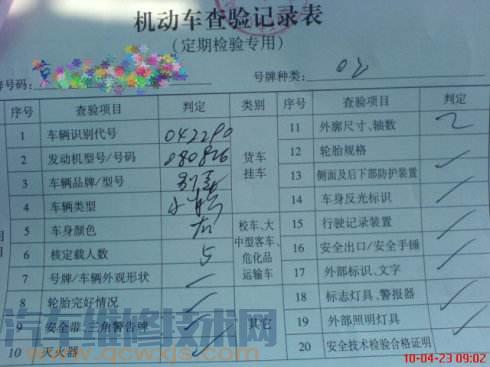 机动车查验记录表
(定期检验专用)
牌号码: 京
号牌种类: 02
序号 查验项目 判定 类别 序号 查验项目 判定
1 车辆识别代号 042290
2 发动机型号/号码 080826
3 车辆品牌/型号
4 车辆类型
5 车身颜色
6 核定载人数 5
7 号牌/车辆外观形状 ✓
8 轮胎完好情况 ✓
9 安全带、三角警告牌 ✓
10 灭火器
货车
挂车
校车、大
中型客车、
危化品
运输车
其它
11 外廓尺寸、轴数
12 轮胎规格 ✓
13 侧面及后下部防护装置
14 车身反光标识 ✓
15 行驶记录装置
16 安全出口/安全手锤 ✓
17 外部标识、文字
18 标志灯具、警报器 ✓
19 外部照明灯具
20 安全技术检验合格证明 ✓
汽车维修技术网
www.qcwxjs.com
10-04-23 09:02